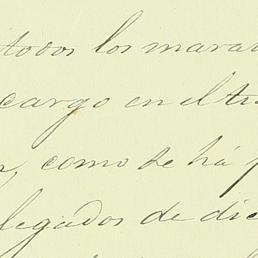 todos los marav
cargo en el tr
como se há p
legados de dic